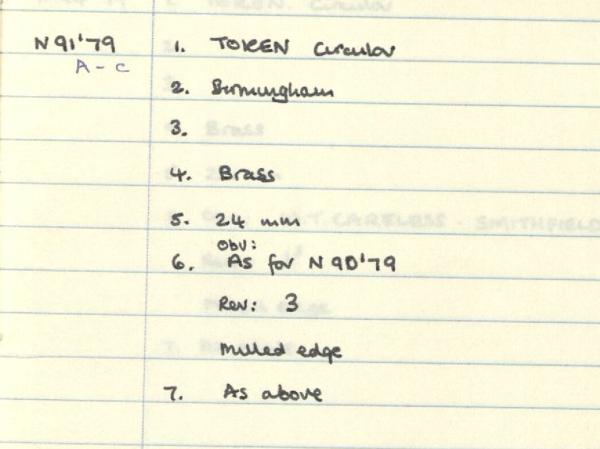 N91'79 1. TOKEN Circular
A-C
2. Birmingham
3.
4. Brass
5. 24 mm
Obv:
6. As for N90'79
Rev: 3
Milled edge
7. As above